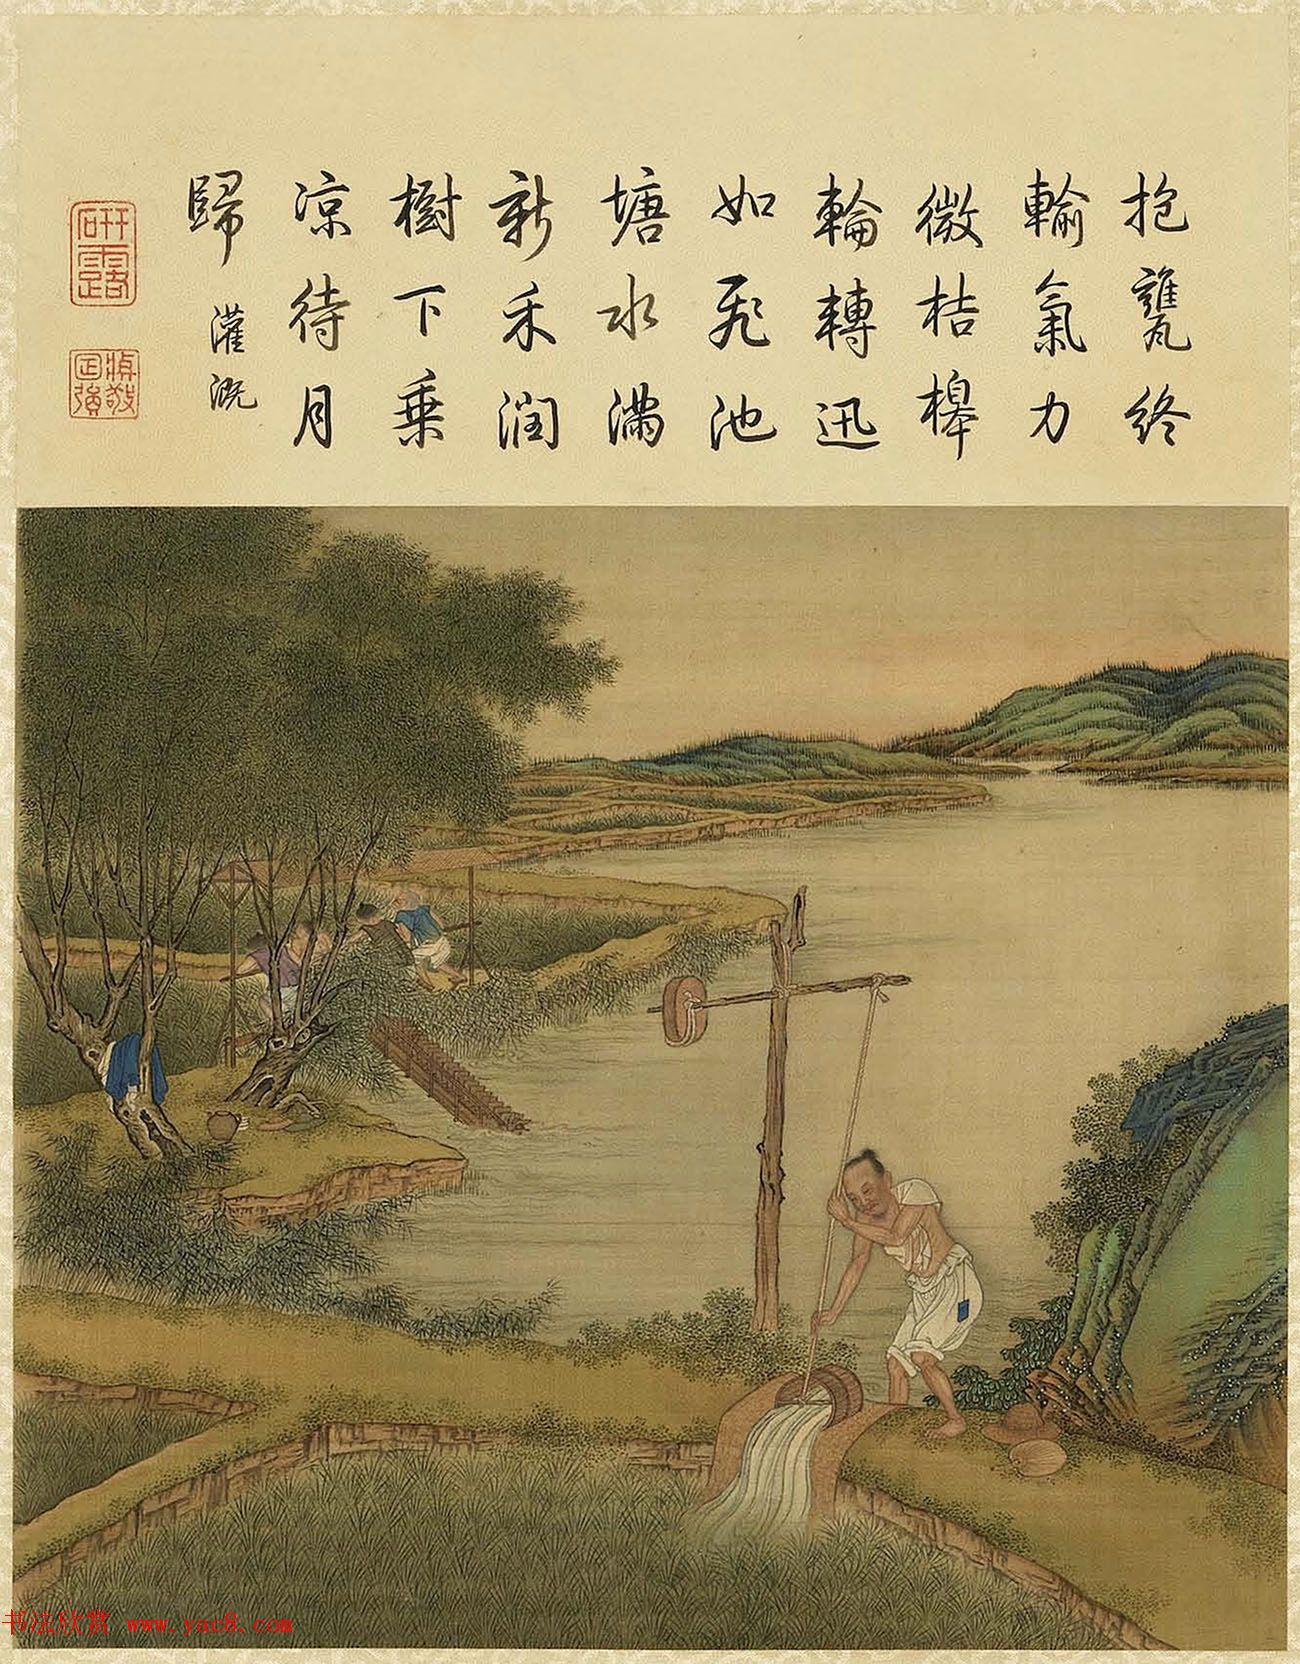 抱甕終
輸氣力
微桔槔
輪轉迅
如飛池
塘水滿
新禾潤
樹下乘
涼待月
歸
灌溉
研露
書法欣赏 www.yac8.com